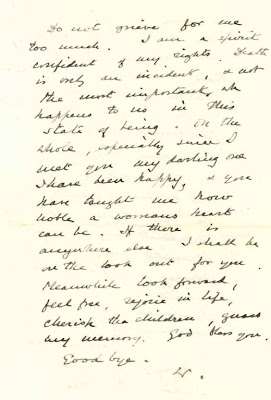 Do not grieve for me
too much. I am a spirit
confident of my rights. Death
is only an incident, & not
the most important, wh
happens to us in this
state of being. On the
whole, especially since I
met you my darling one
I have been happy, & you
have taught me how
noble a womans heart
can be. If there is
anywhere else I shall be
on the look out for you.
Meanwhile look forward,
feel free, rejoice in life,
cherish the children, guard
my memory. God bless you.
Good bye.
W.